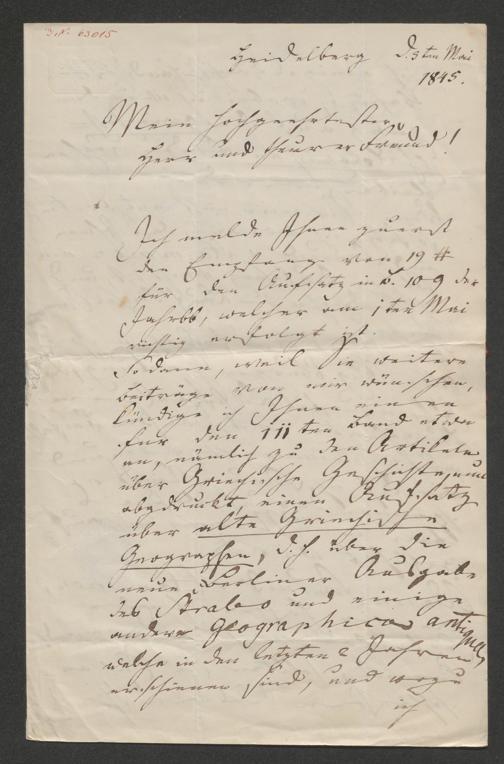 3. N. 63015
Heidelberg d. 3ten Mai
1845.
Mein hochgeehrtester
Herr und theurer Freund!
Ich melde Ihnen zuerst
den Empfang von 19 #
für den Aufsatz in B. 109 der
Jahrbb, welcher am 1ten Mai
richtig erfolgt ist.
Sodann, weil Sie weitere
Beiträge von mir wünschen,
kündige ich Ihnen einen
für den 111ten Band etwa
an, nämlich zu den Artikeln
über Griechische Geschichte, nun
abgedruckt, einen Aufsatz
über alte Griechische
Geographen, d. h. über die
neue Berliner Ausgabe
des Strabo und einige
andere Geographica antiqua,
welche in den letzten 2 Jahren
erschienen sind, und wozu
ich